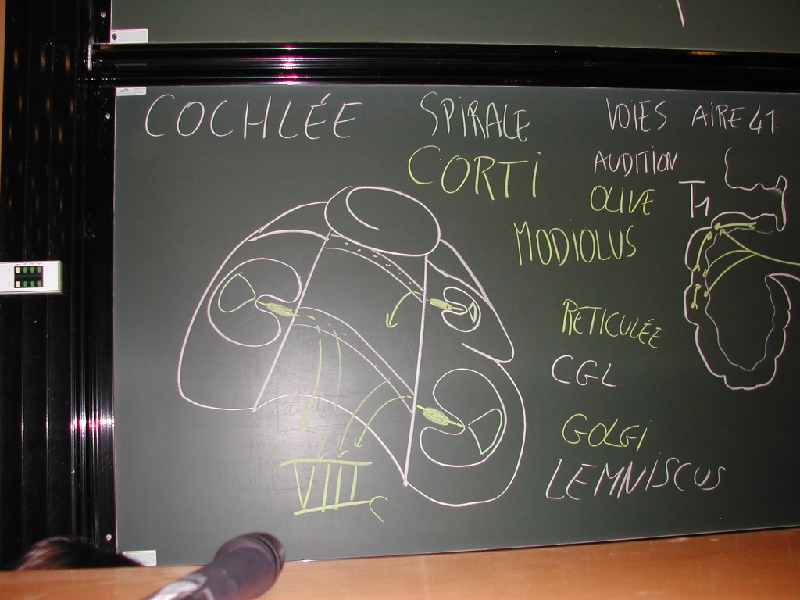 COCHLÉE
SPIRALE
CORTI
MODIOLUS
VOIES AIRE 41
AUDITION
OLIVE
T1
RETICULÉE
CGL
GOLGI
LEMNISCUS
VIII C